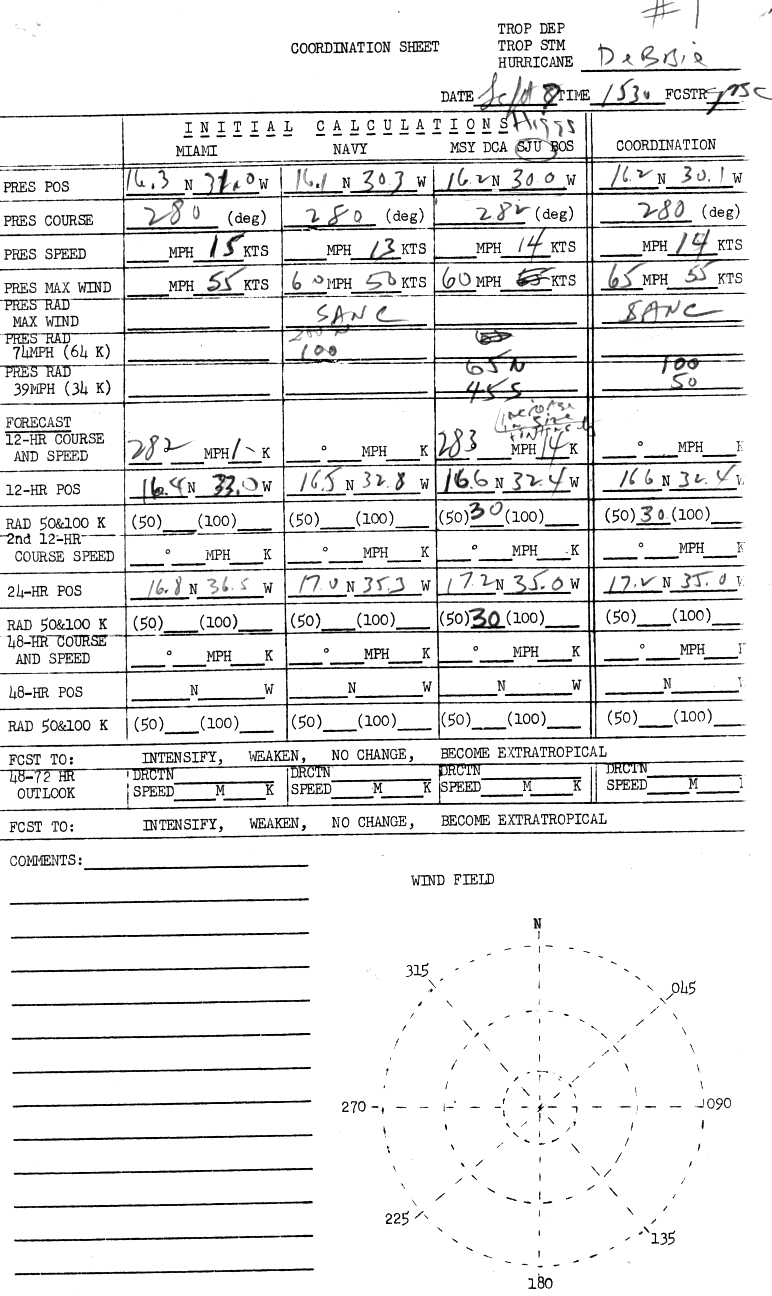 #1
TROP DEP
COORDINATION SHEET TROP STM
HURRICANE DeBBie
DATE Sept 8 TIME 1530 FCSTR
INITIAL CALCULATIONS Higgs
MIAMI NAVY MSY DCA SJU BOS COORDINATION
PRES POS 16.3 N 31.0 W 16.1 N 30.3 W 16.2 N 30.0 W 16.2 N 30.1 W
PRES COURSE 280 (deg) 280 (deg) 282 (deg) 280 (deg)
PRES SPEED MPH 15 KTS MPH 13 KTS MPH 14 KTS MPH 14 KTS
PRES MAX WIND MPH 55 KTS 60 MPH 50 KTS 60 MPH 55 KTS 65 MPH 55 KTS
PRES RAD
MAX WIND SANC SANC
PRES RAD 200 N
74MPH (64 K) 100
PRES RAD 65N 100
39MPH (34 K) 45S 50
FORECAST INCREASE IN SIZE
12-HR COURSE
AND SPEED 282 MPH K ° MPH K 283 MPH 14 K ° MPH K
12-HR POS 16.4 N 33.0 W 16.5 N 32.8 W 16.6 N 32.4 W 16.6 N 32.4 W
RAD 50&100 K (50) (100) (50) (100) (50) 30 (100) (50) 30 (100)
2nd 12-HR
COURSE SPEED ° MPH K ° MPH K ° MPH K ° MPH K
24-HR POS 16.8 N 36.5 W 17.0 N 35.3 W 17.2 N 35.0 W 17.2 N 35.0 W
RAD 50&100 K (50) (100) (50) (100) (50) 30 (100) (50) (100)
48-HR COURSE
AND SPEED ° MPH K ° MPH K ° MPH K ° MPH
48-HR POS N W N W N W N
RAD 50&100 K (50) (100) (50) (100) (50) (100) (50) (100)
FCST TO: INTENSIFY, WEAKEN, NO CHANGE, BECOME EXTRATROPICAL
48-72 HR DRCTN DRCTN DRCTN DRCTN
OUTLOOK SPEED M K SPEED M K SPEED M K SPEED M
FCST TO: INTENSIFY, WEAKEN, NO CHANGE, BECOME EXTRATROPICAL
COMMENTS:
WIND FIELD
N
315 045
270 090
225 135
180